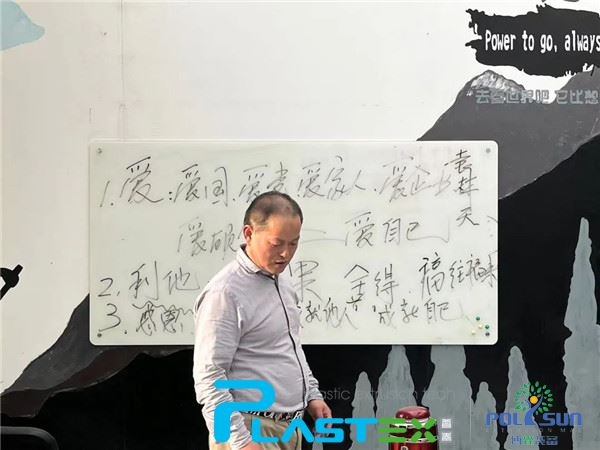 Power to go, always
去看世界吧 它比想
1. 爱.爱国.爱党.爱家人.爱企业
天
爱 爱自己
2. 利他 果 全得. 福往福来
3. 感恩 就他人" 成就自己
Plastic extrusion tech
PLASTEX
POLYSUN